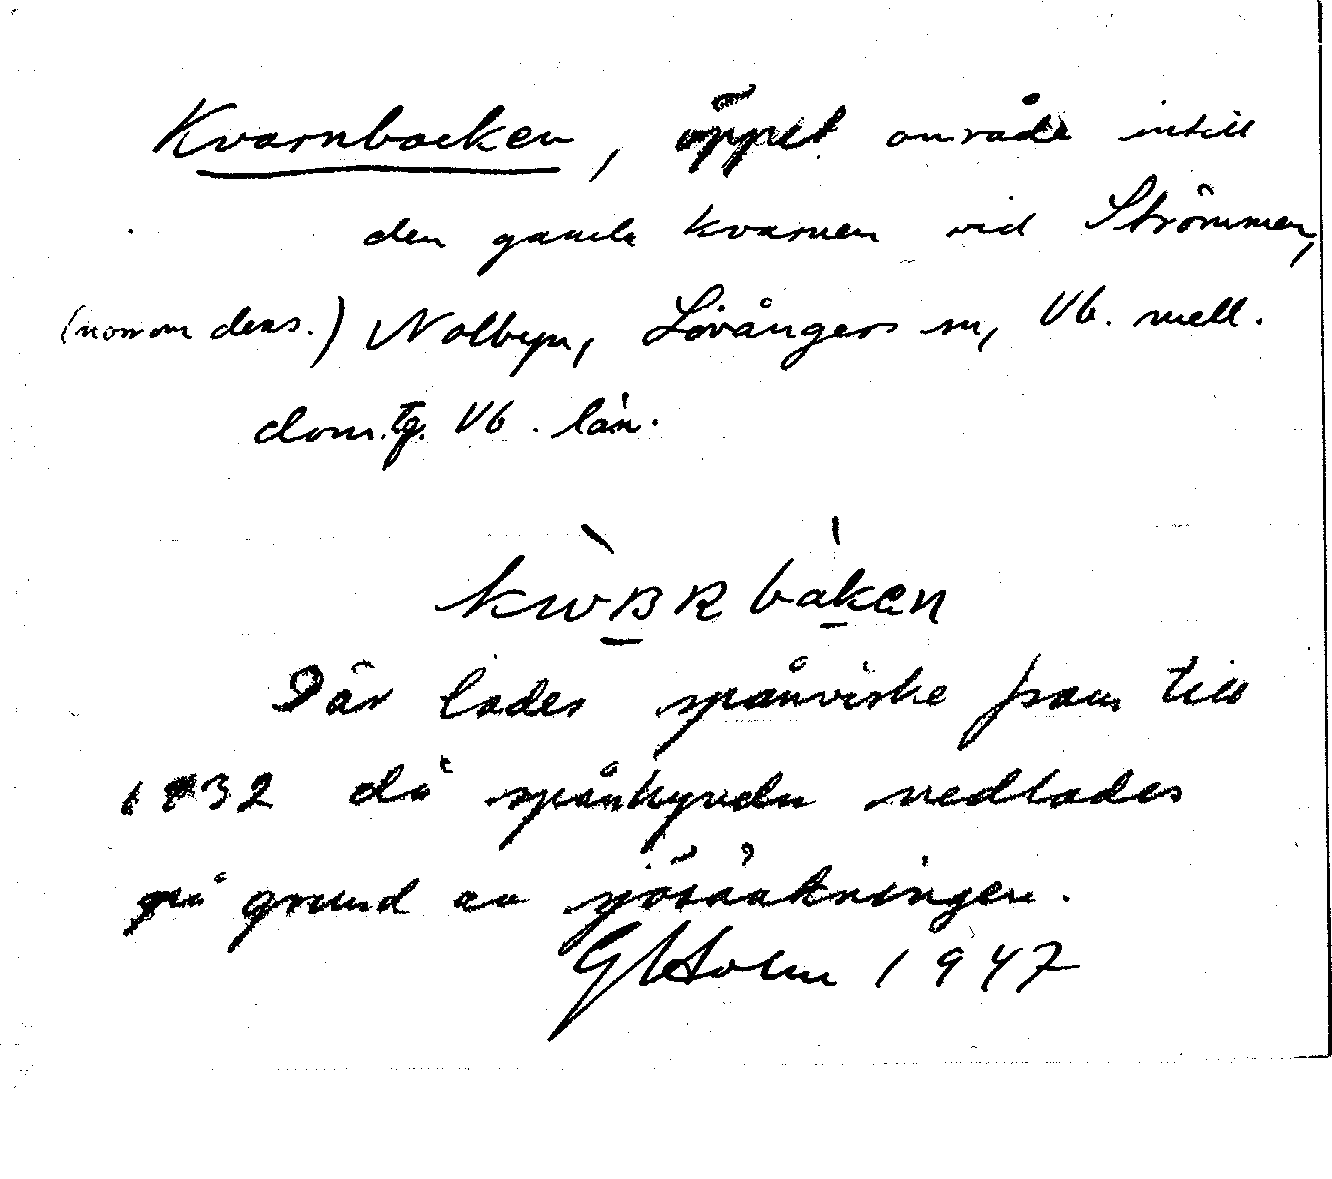 Kvarnbacken, öppet område intill
den gamla kvarnen vid Strömmen,
(norr om dens.) Nolbyn, Lövångers sn, Vb. mell.
dom.tg. Vb. län.
bàken
Där lades spånvirke fram till
1932 då spånhyveln nedlades
på grund av sjösänkningen.
G Holm 1947